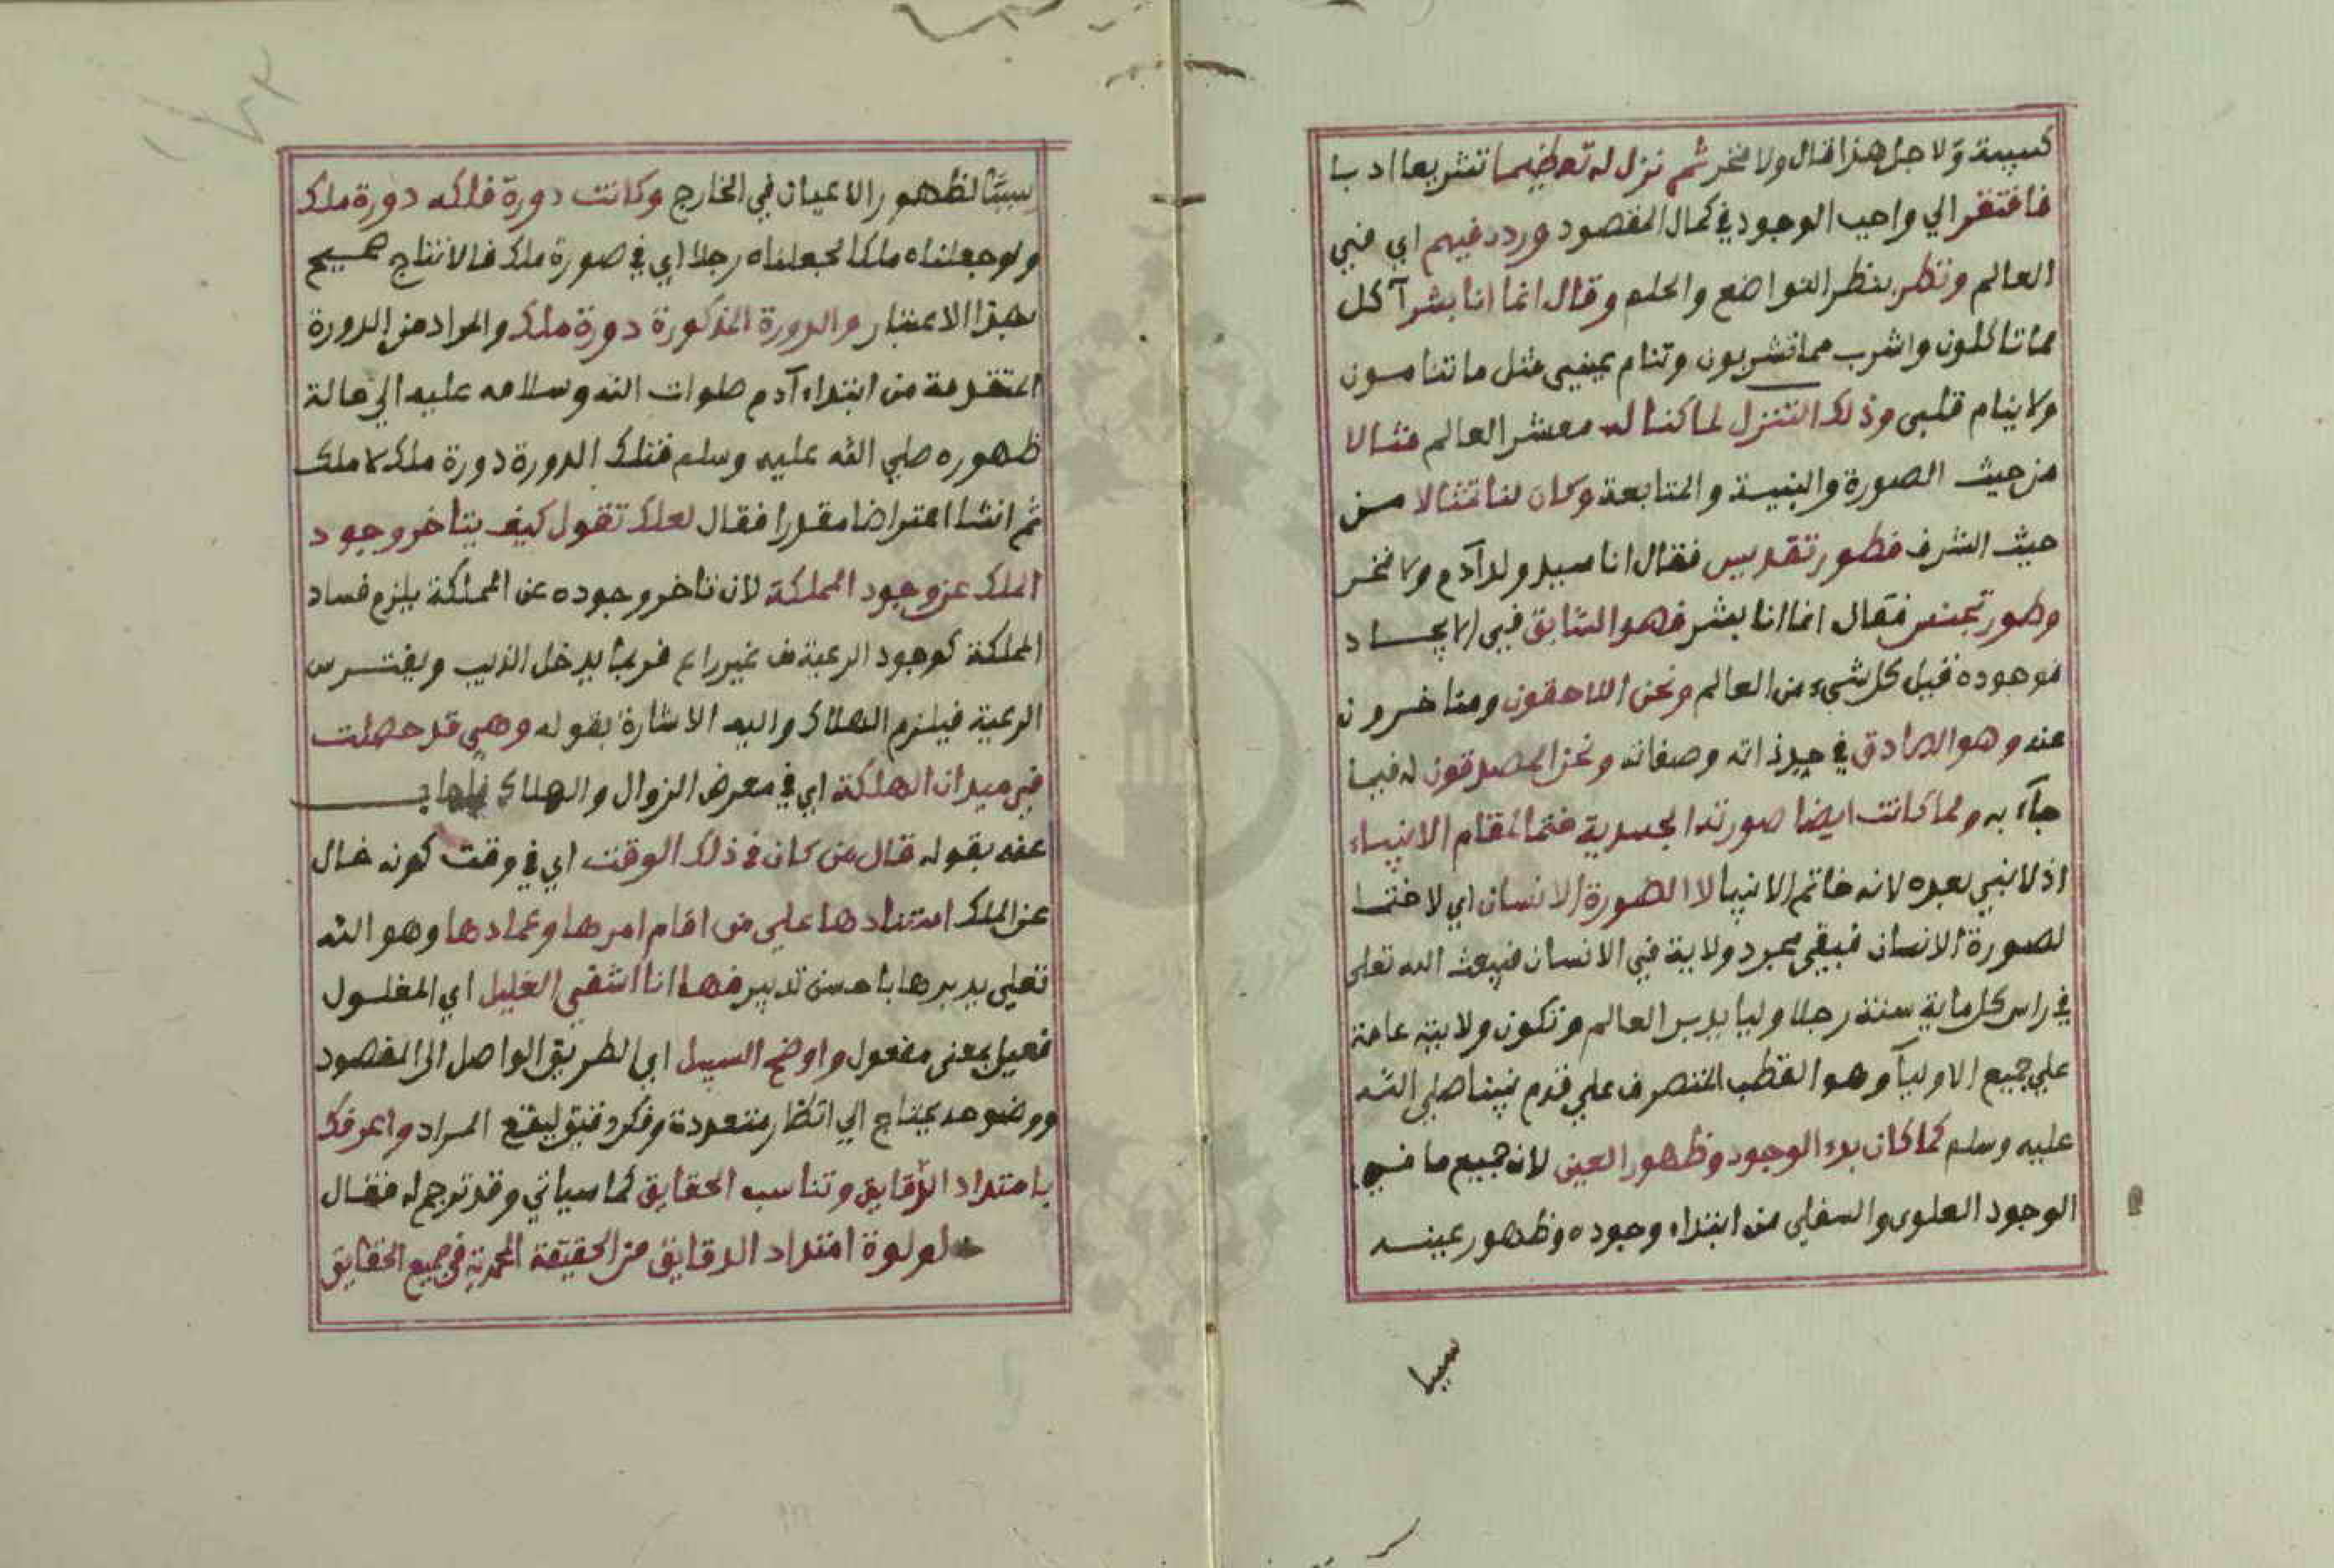 كسبية ولاجل هذا قال ولا فخر ثم نزل له تعظيما تشريعا ادبا
فافتقر الي واجب الوجود في كمال المقصود وردد فيهم اي في
العالم ونظر بنظر التواضع والحلم وقال انما انا بشر آكل
مما تاكلون واشرب مما تشربون وتنام عيني مثل ما تنامون
ولا ينام قلبي وذلك التنزل لما كنا له معشر العالم مثالا
من حيث الصورة والبنية والمتابعة وكان لنا تمثالا من
حيث الشرف فطور تقديس فقال انا سيد ولد آدم ولا فخر
وطور تجنس فقال انما انا بشر فهو السابق في الايجاد
فوجوده قبل كل شيء من العالم ونحن اللاحقون ومتاخرون
عنه وهو الصادق في حد ذاته وصفاته ونحن المصدقون له فيما
جآء به ولما كانت ايضا صورته الجسدية ختما لمقام الانبياء
اذ لا نبي بعده لانه خاتم الانبيا لا الصورة الانسان اي لا ختما
لصورة الانسان فبقي مجرد ولاية في الانسان فيبعث الله تعلى
في راس كل ماية سنة رجلا وليا يدبر العالم وتكون ولايته عامة
علي جميع الاوليآ وهو القطب المتصرف علي قدم نبينا صلي الله
عليه وسلم كما كان بدء الوجود وظهور العين لان جميع ما في
الوجود العلوي والسفلي من ابتداء وجوده وظهور عينه
سببا
سببا لظهور الاعيان في الخارج وكانت دورة فلكه دورة ملك
ولو جعلناه ملكا لجعلناه رجلا اي في صورة ملك فالانتاج صحيح
بهذا الاعتبار والدورة المذكورة دورة ملك والمراد من الدورة
المتقدمة من ابتداء آدم صلوات الله وسلامه عليه الي حالة
ظهوره صلي الله عليه وسلم فتلك الدورة دورة ملك لا ملك
ثم انشا اعتراضا مقدرا فقال لعلك تقول كيف يتاخر وجود
الملك عن وجود المملكة لان تاخر وجوده عن المملكة يلزم فساد
المملكة كوجود الرعية من غير راع فربما يدخل الذيب ويفترس
الرعية فيلزم الهلاك واليه الاشارة بقوله وهي قد حصلت
في ميدان الهلكة اي في معرض الزوال والهلاك فاجاب
عنه بقوله قال من كان في ذلك الوقت اي في وقت كونه خال
عن الملك استنادها علي من اقام امرها وعمادها وهو الله
تعلي يدبرها باحسن تدبير فها انا اشفي الغليل اي المغلول
فعيل بمعنى مفعول واوضح السبيل اي الطريق الواصل الى المقصود
ووضوحه يحتاج الي انظار متعددة وفكر دقيق ليقع المراد واعرفك
بامتداد الرقايق وتناسب الحقايق كما سياتي وقد ترجم له فقال
لولوة امتداد الدقايق من الحقيقة المحمدية في جميع الحقايق